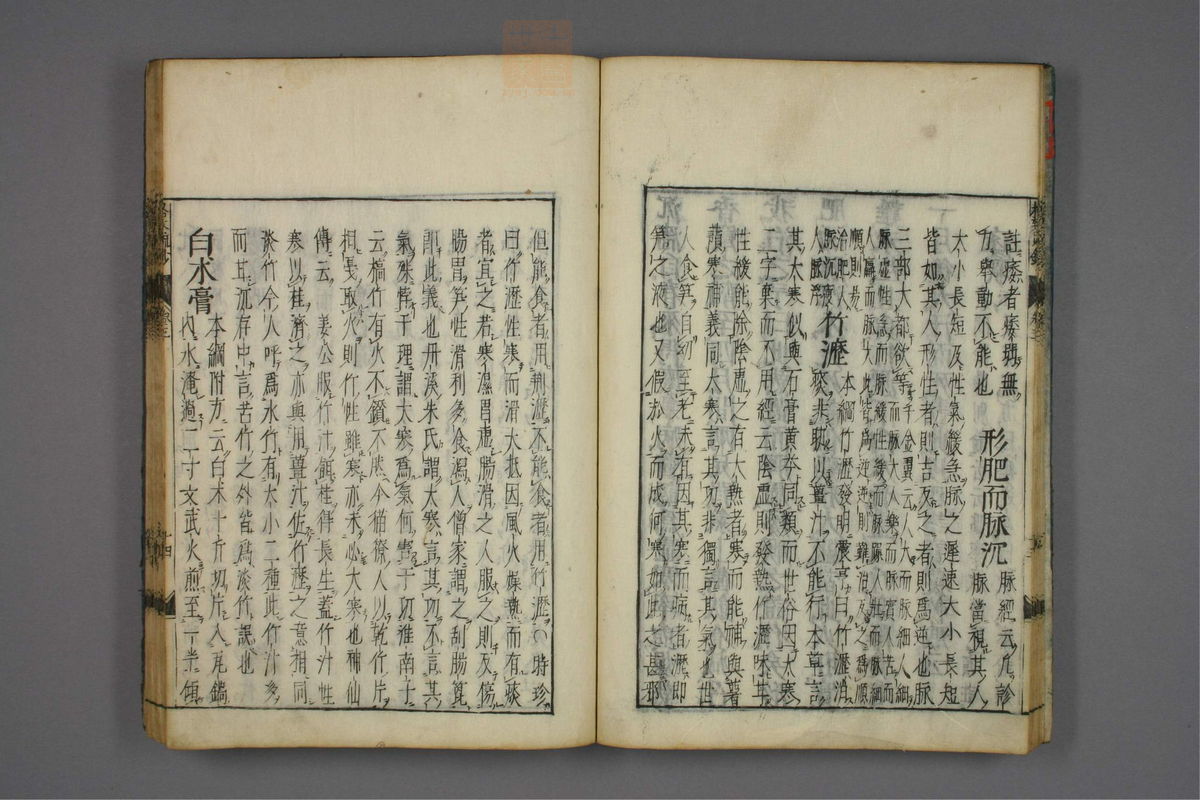 註痿者痿弱無
力擧動不能也
形肥而脉沉
脉經云凡診
脉當視其人
太小長短及性氣緩急脉之遲速大小長短
皆如其人形性者則吉反之者則爲逆也脉
三部大都欲等
千金翼云人大而脉細人細
而脉大人樂而脉實人苦而
脉虛性急而脉緩性緩而脉躁人壯而脉細
人羸而脉大此皆爲逆逆則難治反之爲順
順則易
治肥人
脉沉瘦
人脉浮
竹瀝
本綱竹瀝發明震亨曰竹瀝滑
痰非助以薑汁不能行本草言
其大寒似與石膏黄芩同類而世俗因大寒
二字棄而不用經云陰虛則發熱竹瀝味甘
性緩能除陰虛之有大熱者寒而能補與薯
蕷寒補義同大寒言其功非獨言其氣也世
人食笋自幼至老未有因其寒而病者瀝即
笋之液也又假於火而成何寒如此之甚耶
但能食者用荊瀝不能食者用竹瀝○時珍
曰竹瀝性寒而滑大抵因風火燥熱而有痰
者宜之若寒濕胃虛腸滑之人服之則反傷
腸胃笋性滑利多食瀉人僧家謂之刮腸箆
即此義也丹溪朱氏謂大寒言其功不言其
氣殊悖于理謂大寒爲氣何害于功淮南子
云槁竹有火不鑽不燃今猫獠人以乾竹片
相戛取火則竹性雖寒亦未必大寒也神仙
傳云離婁公服竹汁餌桂得長生蓋竹汁性
寒以桂濟之亦與用薑汁佐竹瀝之意相同
淡竹今人呼爲水竹有大小二種此竹汁多
而甘沉存中言苦竹之外皆爲淡竹誤也
白朮膏
本綱附方云白朮十斤切片入瓦鍋
内水淹過二寸文武火煎至一半傾